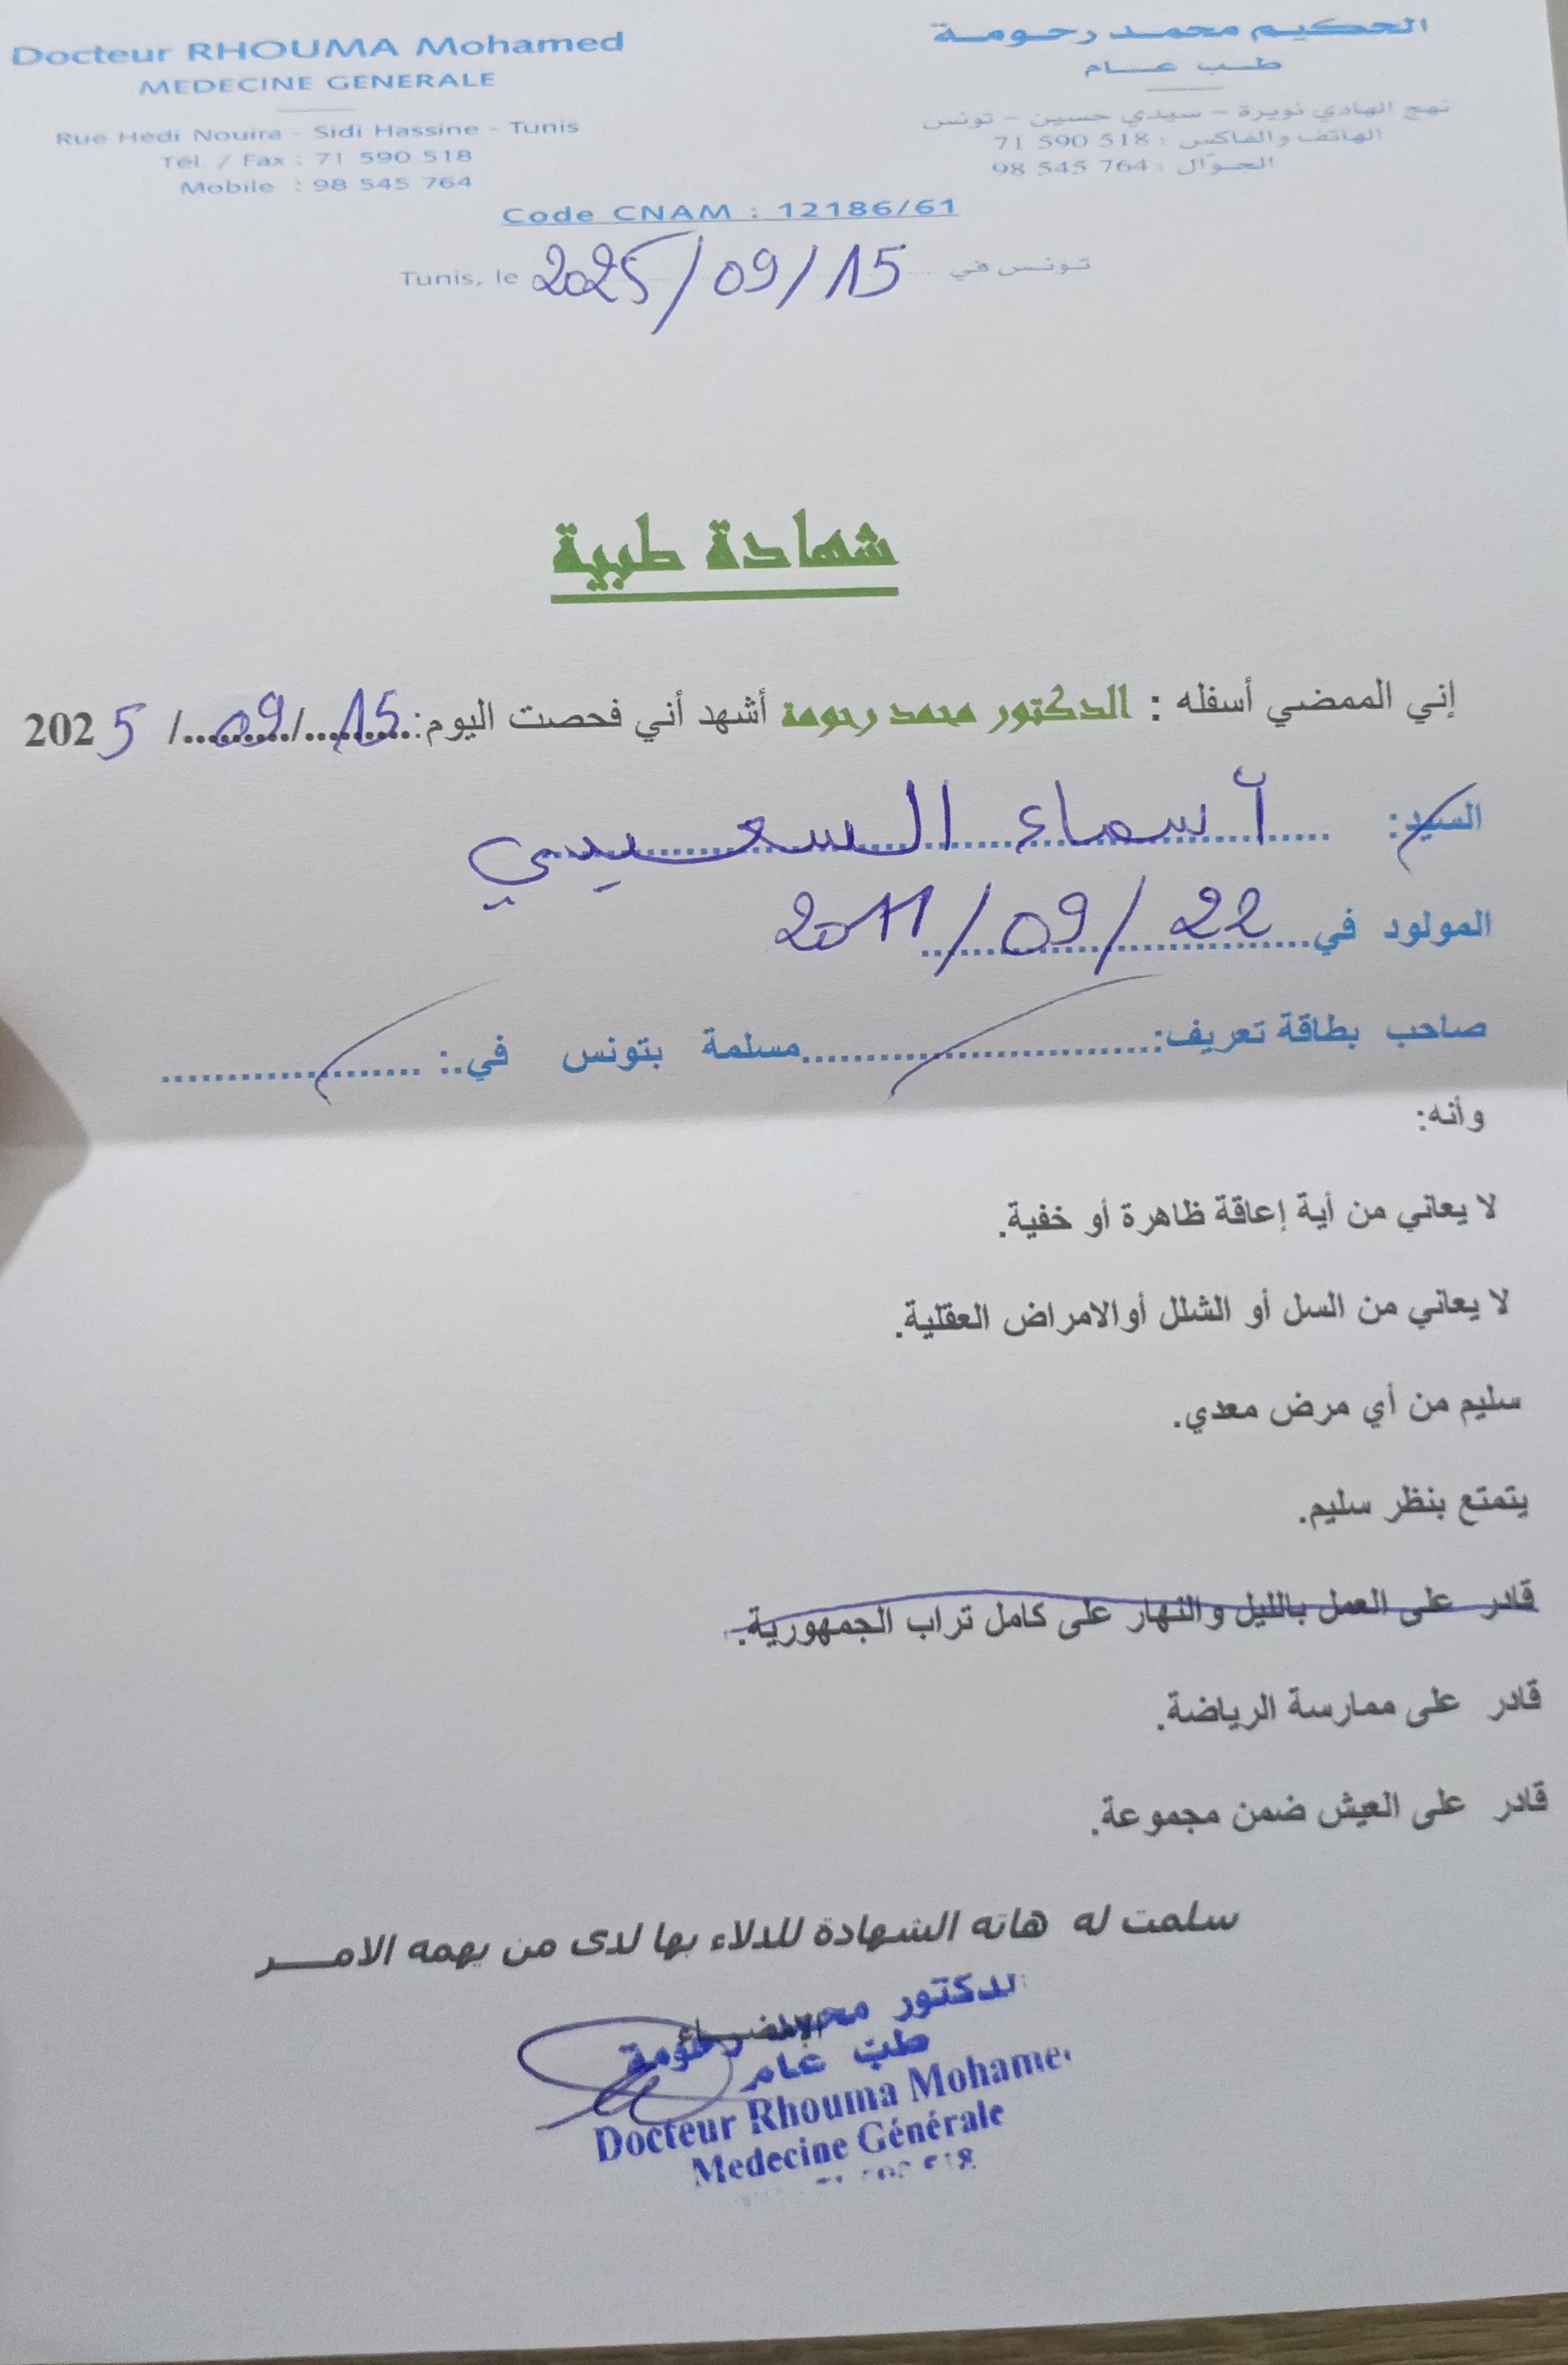 Docteur RHOUMA Mohamed
MEDECINE GENERALE
Rue Hédi Nouira - Sidi Hassine - Tunis
Tél. / Fax : 71 590 518
Mobile : 98 545 764
الحكيم محمد رحومة
طب عام
نهج الهادي نويرة - سيدي حسين - تونس
الهاتف والفاكس : 71 590 518
الجوّال : 98 545 764
Code CNAM : 12186/61
Tunis, le 2025/09/15 تونس في
شهادة طبية
إني الممضي أسفله : الدكتور محمد رحومة أشهد أني فحصت اليوم: 15/09/2025
السيد: أسماء السعيدي
المولود في 22/09/2011
صاحب بطاقة تعريف: مسلمة بتونس في:
وأنه:
لا يعاني من أية إعاقة ظاهرة أو خفية.
لا يعاني من السل أو الشلل أوالامراض العقلية.
سليم من أي مرض معدي.
يتمتع بنظر سليم.
قادر على العمل بالليل والنهار على كامل تراب الجمهورية.
قادر على ممارسة الرياضة.
قادر على العيش ضمن مجموعة.
سلمت له هاته الشهادة للدلاء بها لدى من يهمه الامــر
الإمضــاء
الدكتور محمد رحومة
طب عام
Docteur Rhouma Mohame
Medecine Générale
518